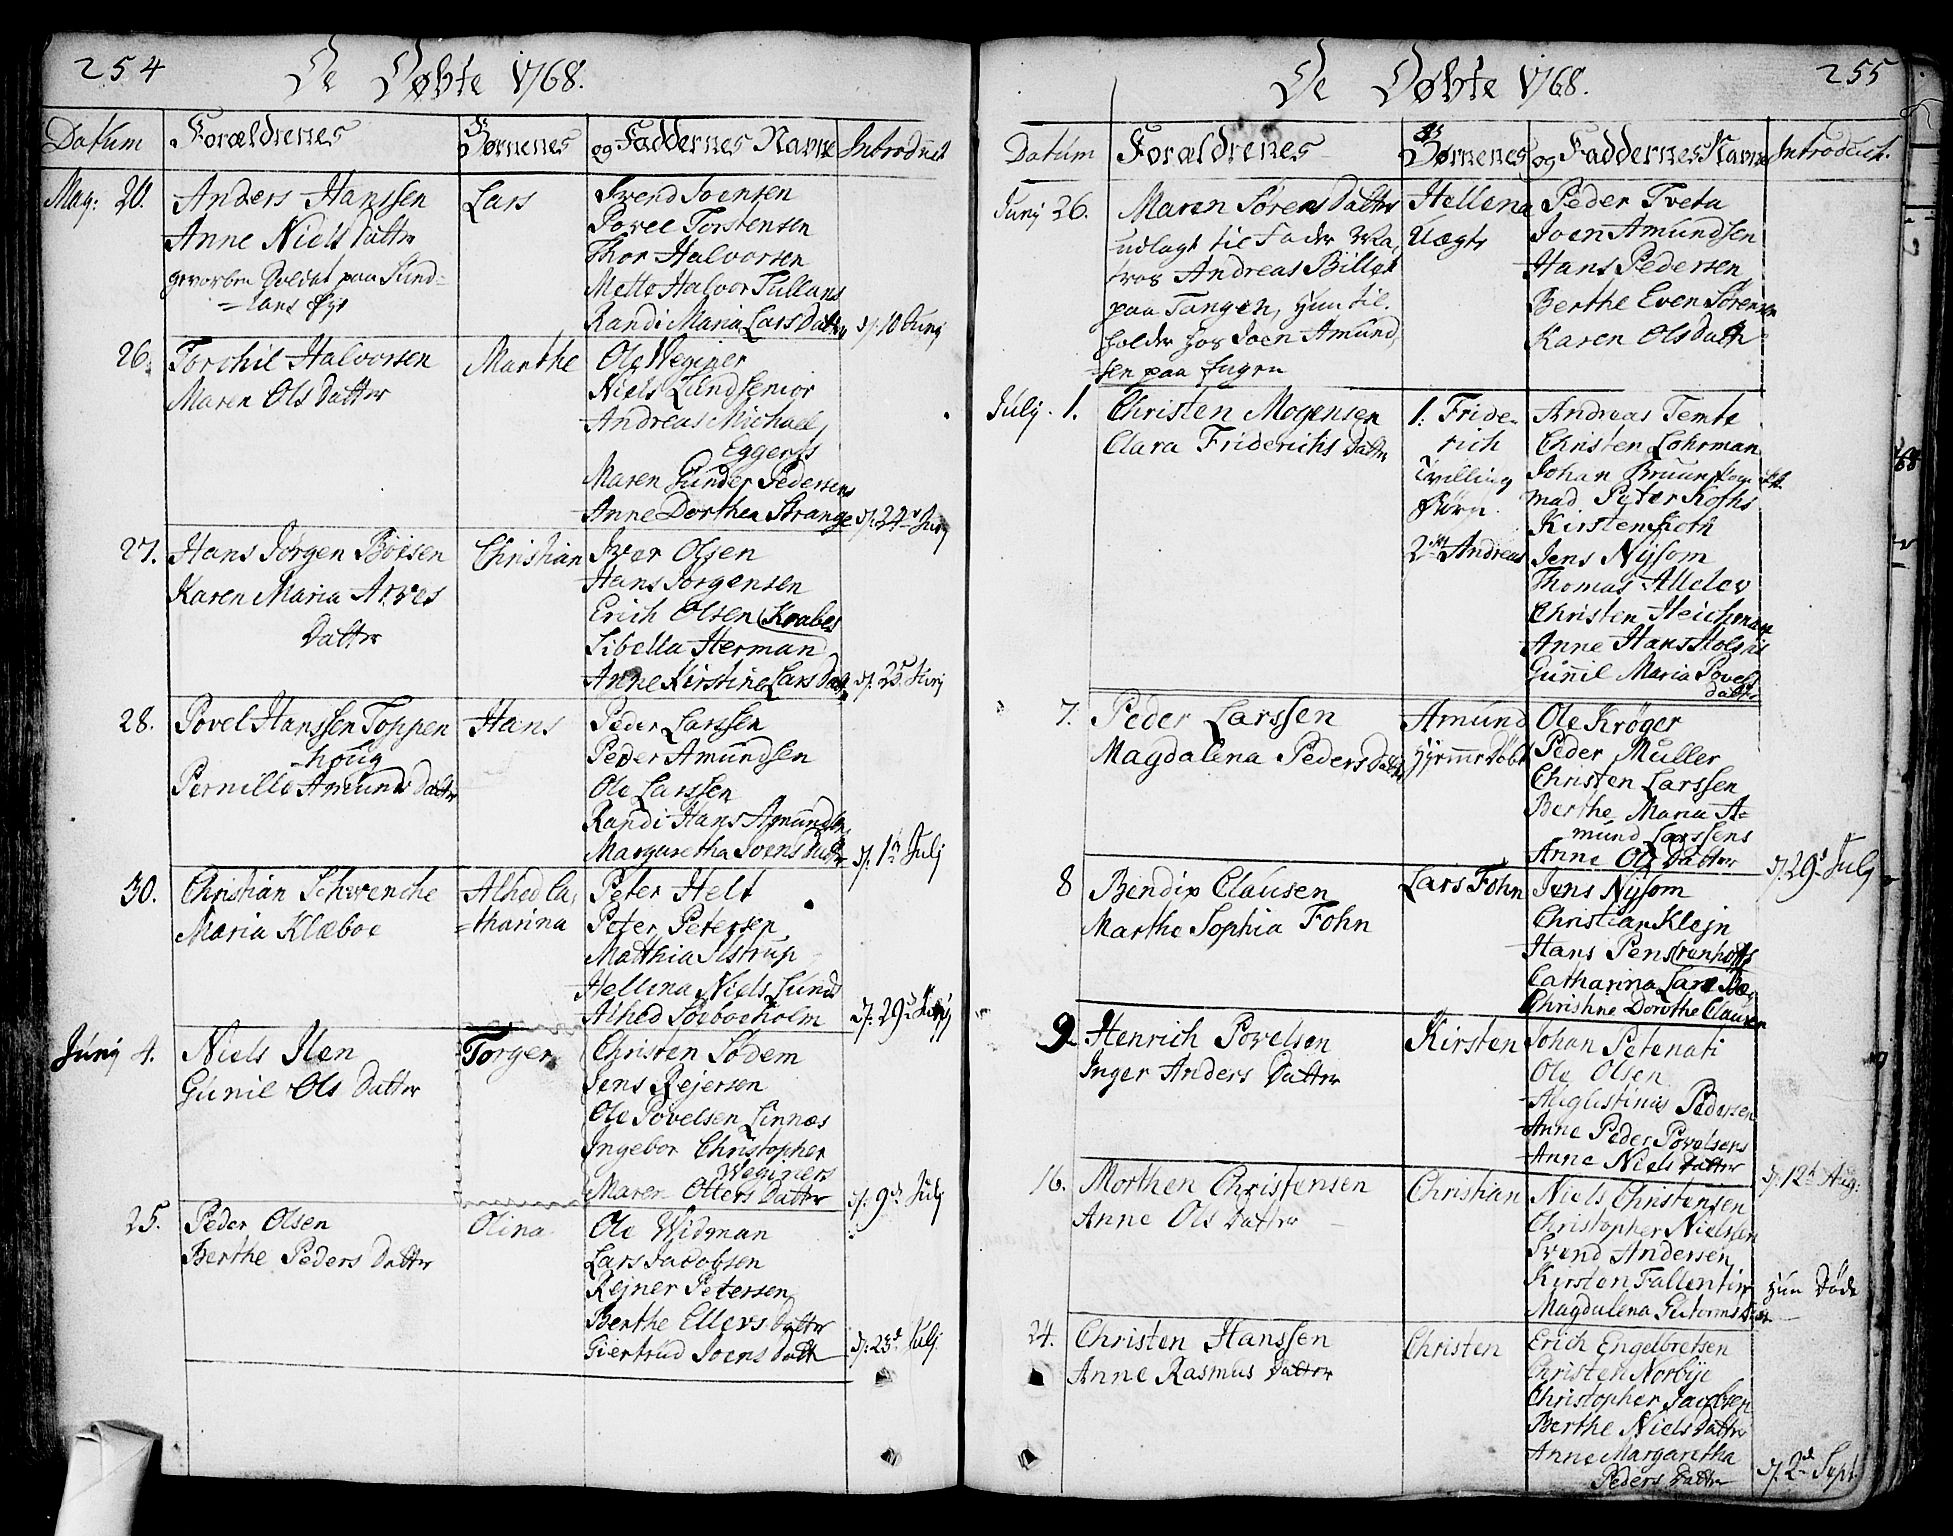 254
De Døbte 1768.
Datum Forældrenes Børnenes og Faddernes Navne Introduct
Maij: 20. Anders Hanssen Lars Svend Joensen
Anne Niels Datter Povel Torstensen
gevorben Soldat paa Sund= Thor Halvorsen
=Lans Mette Halvor Tullans
Randi Maria Lars Datter d. 10 Junij
26. Torchil Halvorsen Marthe Ole Weginer
Maren Ols Datter Niels Lund senior
Andreas Michael
Eggers
Maren Gunder Pedersens
Anne Dorthea Strange d. 24 Junij
27. Hans Jørgen Böisen Christian Iver Olsen
Karen Maria Arves Hans Jørgensen
Datter Erich Olsen Krabes
Sibella Herman
Anne Kirstine Lars Dat. d. 25 Junij
28. Povel Hanssen Toppen Hans Peder Larssen
-houg Peder Amundsen
Pernille Amunds Datter Ole Larssen
Randi Hans Amundsens
Margaretha Joens Datter d. 1 Julij
30. Christian Schwenche Alhed Ca, Peter Helt
Maria Klæboe =tharina Peter Petersen
Matthia Ilstrup
Hellena Niels Lunds
Alhed Soeboeholm d. 29 Junij
Junij 4. Niels Ilen Torger Christen Sødem
Gunil Ols Datter Jens Rejersen
Ole Povelsen Linnæs
Ingebor Christopher
Weginers
Maren Otters Datter d. 9 Julij
25. Peder Olsen Olina Ole Widman
Berthe Peders Datter Lars Jacobsen
Rejner Petersen
Berthe Ellevs Datter
Giertrud Joens Datt d. 23 Julij
De Døbte 1768. 255
Datum Forældrenes Børnenes og Faddernes Navne Introduct.
Junij 26. Maren Sørens Datter Hellena Peder Tveta
udlagt til Fader Uægte Joen Amundsen
Andreas Billet Hans Pedersen
paa Tangen, hun til, Berthe Even Sørensen
holder hos Joen Amund, Karen Ols Datter
-sen paa
Julij. 1. Christen Mogensen 1. Fride- Andreas Temte
Clara Friderichs Datter rich Christen Lohrman
Tvilling Johan Bruun
Børn. Mad. Peter Koths
Kirsten Koth
2 Andreas Jens Nysom
Thomas Allelev
Christen Heichman
Anne Hans Holst
Gunnil Maria Povels
Datter
7. Peder Larssen Amund Ole Krøger
Magdalena Peders Datter Hjemme Døbt Peder Muller
Christen Larssen
Berthe Maria A=
mund Larssens
Anne Ols Datter d. 29 Julij
8 Bendix Clausen Lars Fohn Jens Nysom
Marthe Sophia Fohn Christian Klejn
Hans Pens
Catharina Lars
Christine Dorothe Clausen
9 Henrich Povelsen Kirsten Johan Petenati
Inger Anders Datter Ole Olsen
Augustinus Pedersen
Anne Peder Povelsens
Anne Niels Datter d. 12 Aug:
16. Morthen Christensen Christian Niels Christensen
Anne Ols Datter Christopher Nielssen
Svend Andersen
Kirsten Fallentin hun Døde
Magdalena
24. Christen Hanssen Christen Erich Engelbretsen
Anne Rasmus Datter Christen Norbye
Christopher Jacobsen
Berthe Niels Datter
Anne Margaretha
Peders Datter d. 2 Sept